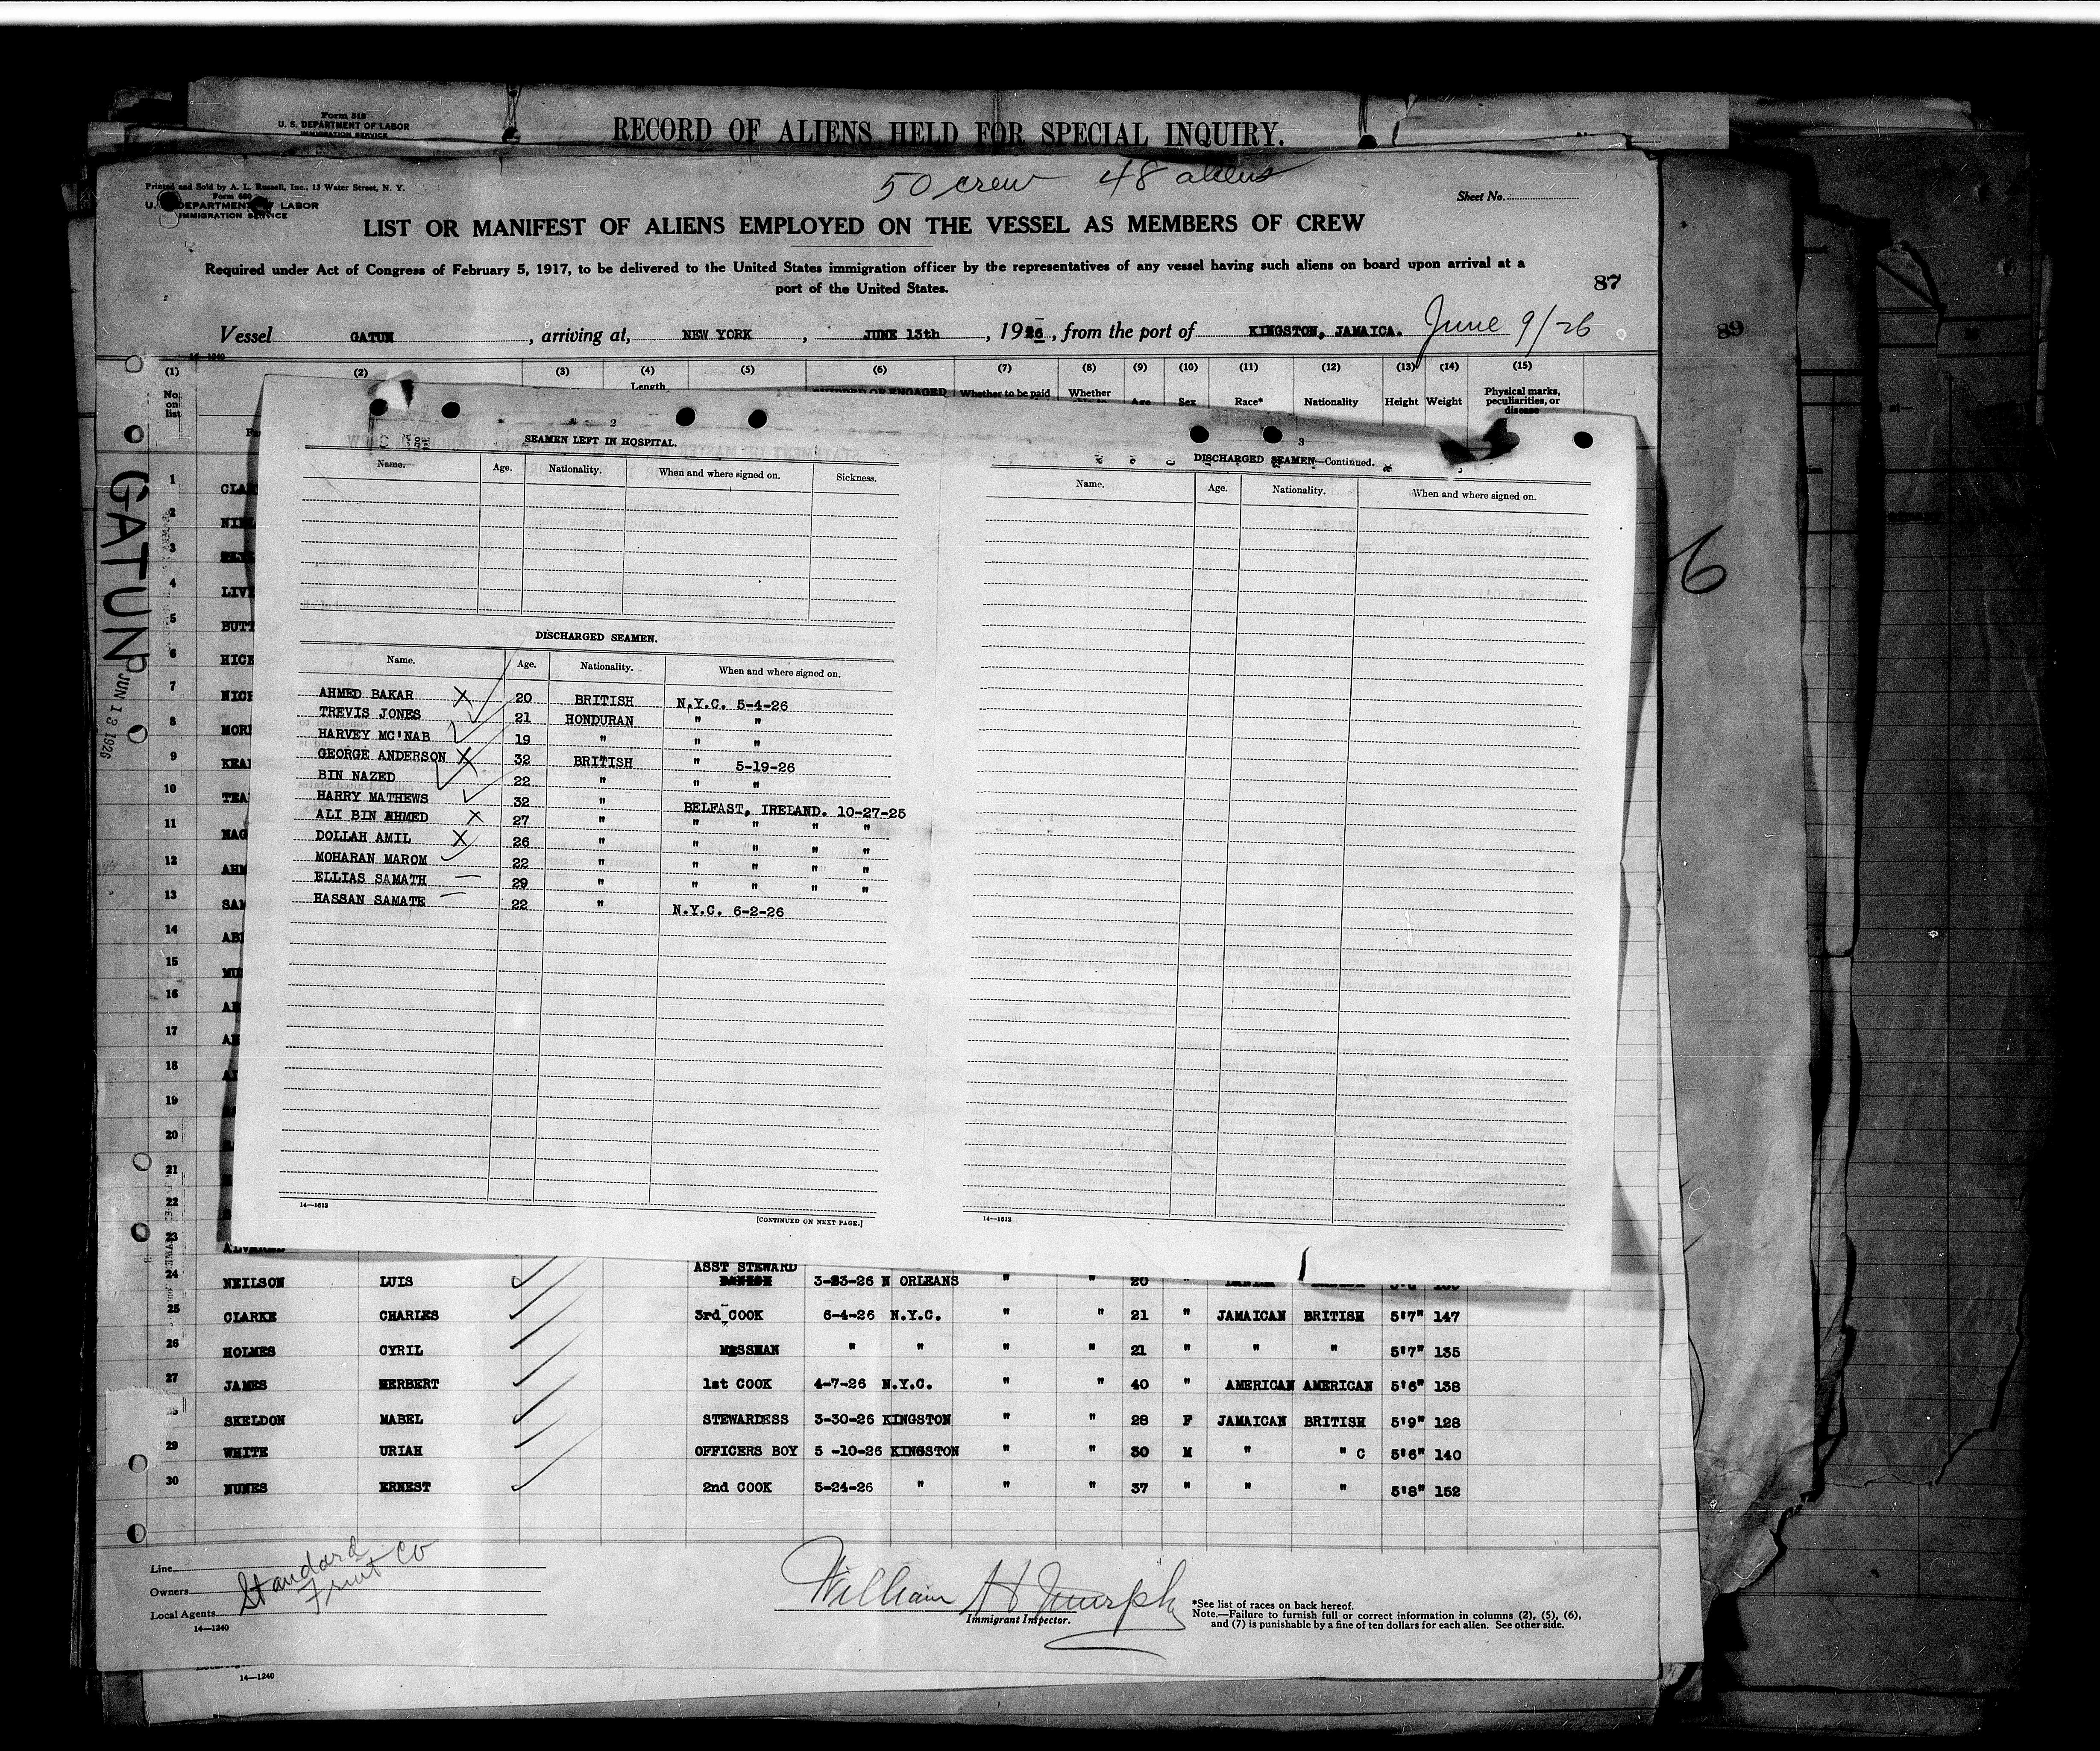 Form 515
U. S. DEPARTMENT OF LABOR
IMMIGRATION SERVICE
RECORD OF ALIENS HELD FOR SPECIAL INQUIRY.
50 crew 48 aliens
Printed and Sold by A. L. Russell, Inc., 13 Water Street, N. Y.
Form 680
U. S. DEPARTMENT OF LABOR
IMMIGRATION SERVICE
Sheet No.
LIST OR MANIFEST OF ALIENS EMPLOYED ON THE VESSEL AS MEMBERS OF CREW
Required under Act of Congress of February 5, 1917, to be delivered to the United States immigration officer by the representatives of any vessel having such aliens on board upon arrival at a
port of the United States.
87
89
Vessel GATUN, arriving at, NEW YORK, JUNE 13th, 1926, from the port of KINGSTON, JAMAICA. June 9/26
14—1240
(1) (2) (3) (4) (5) (6) (7) (8) (9) (10) (11) (12) (13) (14) (15)
No. on list
Length
SHIPPED OR ENGAGED
Whether to be paid
Whether
Age
Sex
Race*
Nationality
Height
Weight
Physical marks, peculiarities, or disease
GATUN
JUN 13 1926
6
2
SEAMEN LEFT IN HOSPITAL.
Name. Age. Nationality. When and where signed on. Sickness.
DISCHARGED SEAMEN.
Name. Age. Nationality. When and where signed on.
AHMED BAKAR X 20 BRITISH N.Y.C. 5-4-26
TREVIS JONES 21 HONDURAN " "
HARVEY MC'NAB 19 " " "
GEORGE ANDERSON X 32 BRITISH " 5-19-26
BIN NAZED 22 " " "
HARRY MATHEWS 32 " BELFAST, IRELAND. 10-27-25
ALI BIN AHMED X 27 " " " " "
DOLLAH AMIL X 26 " " " " "
MOHARAN MAROM 22 " " " " "
ELLIAS SAMATH 29 " " " " "
HASSAN SAMATE 22 " N.Y.C. 6-2-26
14—1613
[CONTINUED ON NEXT PAGE.]
3
DISCHARGED SEAMEN—Continued.
Name. Age. Nationality. When and where signed on.
14—1613
1
2
3
4 LIV
5 BUTT
6
7
8
9
10
11
12
13
14
15
16
17
18
19
20
21
22
23
ASST STEWARD
24 NEILSON LUIS 3-23-26 N ORLEANS " " 20 "
25 CLARKE CHARLES 3rd COOK 6-4-26 N.Y.C. " " 21 " JAMAICAN BRITISH 5'7" 147
26 HOLMES CYRIL MESSMAN " " " " 21 " " " 5'7" 135
27 JAMES HERBERT 1st COOK 4-7-26 N.Y.C. " " 40 " AMERICAN AMERICAN 5'6" 138
SKELDON MABEL STEWARDESS 3-30-26 KINGSTON " " 28 F JAMAICAN BRITISH 5'9" 128
29 WHITE URIAH OFFICERS BOY 5-10-26 KINGSTON " " 30 M " " C 5'6" 140
30 NUNES ERNEST 2nd COOK 5-24-26 " " " 37 " " " 5'8" 152
Line
Owners
Local Agents
Standard
Fruit Co
14—1240
William H Murphy
Immigrant Inspector.
*See list of races on back hereof.
Note.—Failure to furnish full or correct information in columns (2), (5), (6),
and (7) is punishable by a fine of ten dollars for each alien. See other side.
14—1240